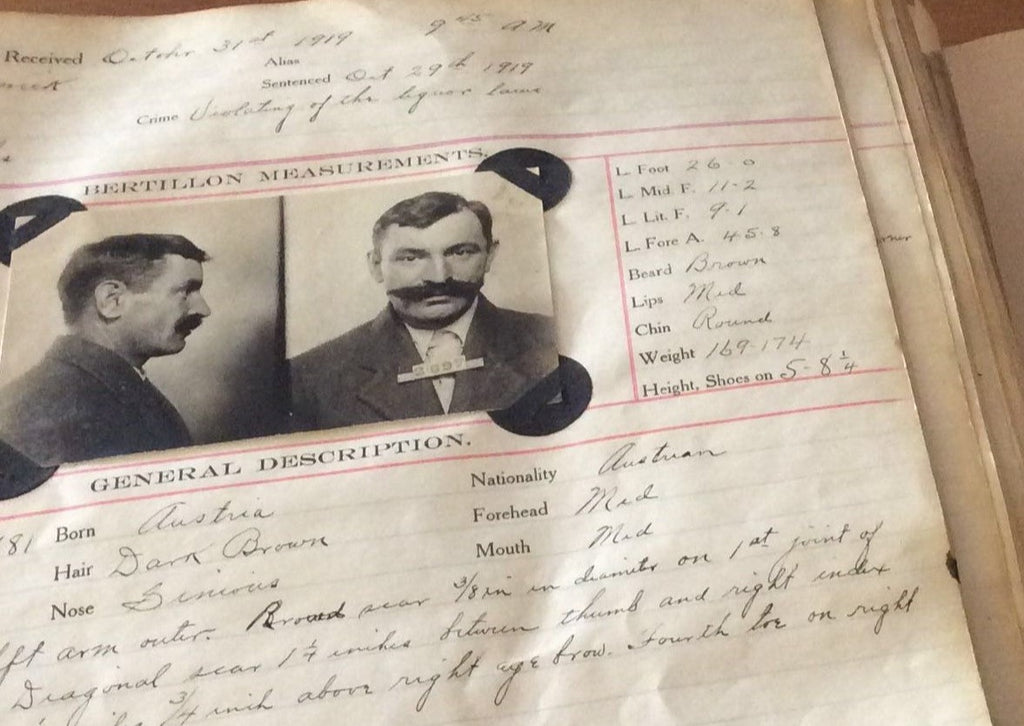 Received October 31st 1919 9 45 AM
Alias
Sentenced Oct 29th 1919
Crime Violating of the liquor laws
BERTILLON MEASUREMENTS.
L. Foot 26-0
L. Mid. F. 11-2
L. Lit. F. 9-1
L. Fore A. 45-8
Beard Brown
Lips Med
Chin Round
Weight 169-174
Height, Shoes on 5-8 1/4
GENERAL DESCRIPTION.
81 Born Austria Nationality Austrian
Hair Dark Brown Forehead Med
Nose Sinious Mouth Med
arm outer. Round scar 3/8 in in diameter on 1st joint of
Diagonal scar 1 1/4 inches between thumb and right index
3/4 inch above right eye brow. Fourth toe on right